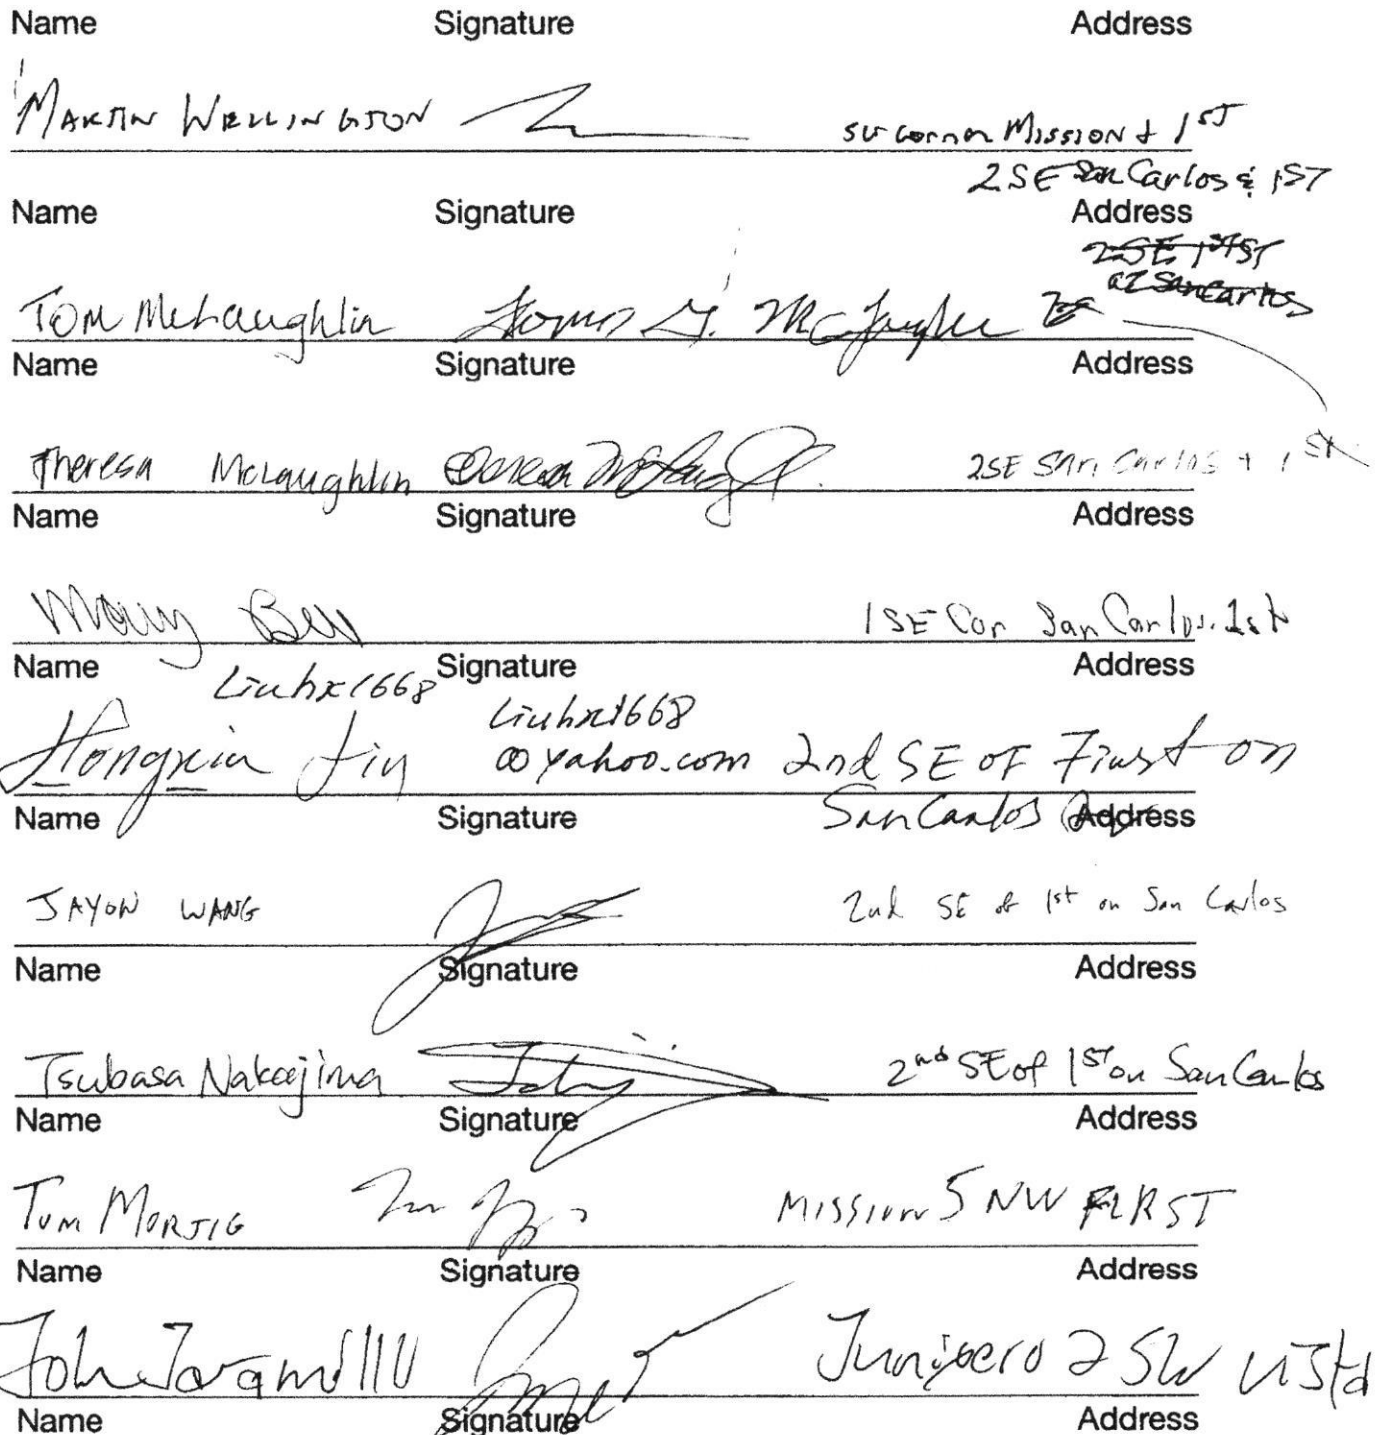 Name Signature Address
MARTIN WELLINGTON corner MISSION + 1ST
2SE San Carlos & 1ST
Name Signature Address
2SE 1st ST
at San Carlos
Tom McLaughlin Thomas G. McLaughlin
Name Signature Address
Theresa McLaughlin Theresa McLaughlin 2SE San Carlos + 1st
Name Signature Address
1SE Cor San Carlos. 1st
Name Signature Address
Liuhx1668
Liuhx1668
Hongxia @yahoo.com 2nd SE OF First on
San Carlos
Name Signature Address
JAYON WANG 2nd SE of 1st on San Carlos
Name Signature Address
Tsubasa Nakajima 2nd SE of 1st on San Carlos
Name Signature Address
Tom MISSION 5 NW FIRST
Name Signature Address
John Jaramillo Junipero 2 SW
Name Signature Address